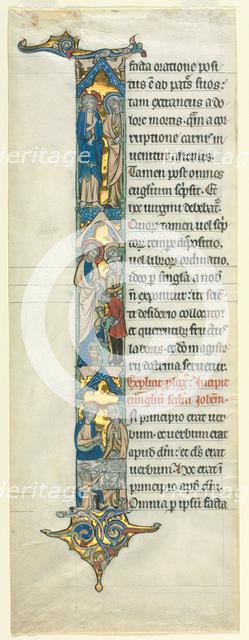 facta oratione posi
tus ē ad patres suos:
tam extraneus a do
lore mortis. quā a cor
ruptione carnis in
venitur alienus.
Tamen post omnes
euglium scripsit. Et
hoc virgini debebat.
Quorū tamen vel scrip
torū tempore dispositio.
vel librorū ordinatio.
ideo per singula a nob
n exponitur: ut sciē
di desiderio collocato:
et querentibus fructus
laboris. et do magiste
rii doctrina servetur.
Explicit plogs. Incipit
euuglium secdm Iohem.
In principio erat ver
bum. et verbum erat
apud dm: et ds erat
verbum. hoc erat in
principio apud dm.
Omnia per ipsum facta
heritage
heritage
heritage
Images
Images